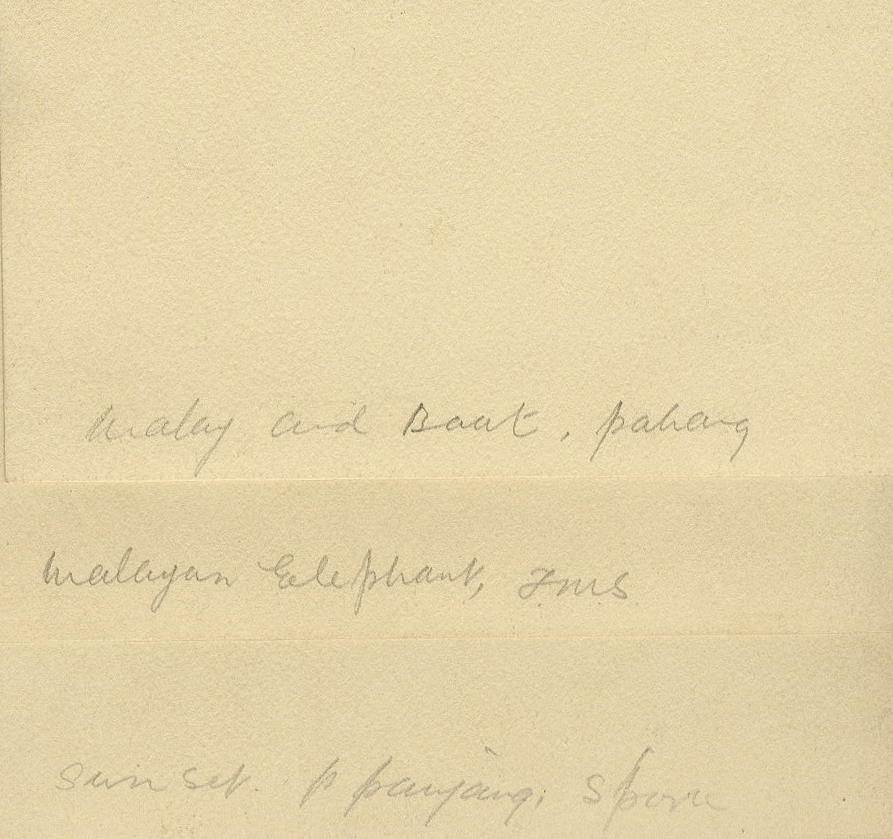 Malay and Boat, Pahang
Malayan Elephant, FMS
Sunset. P Panjang, S'pore